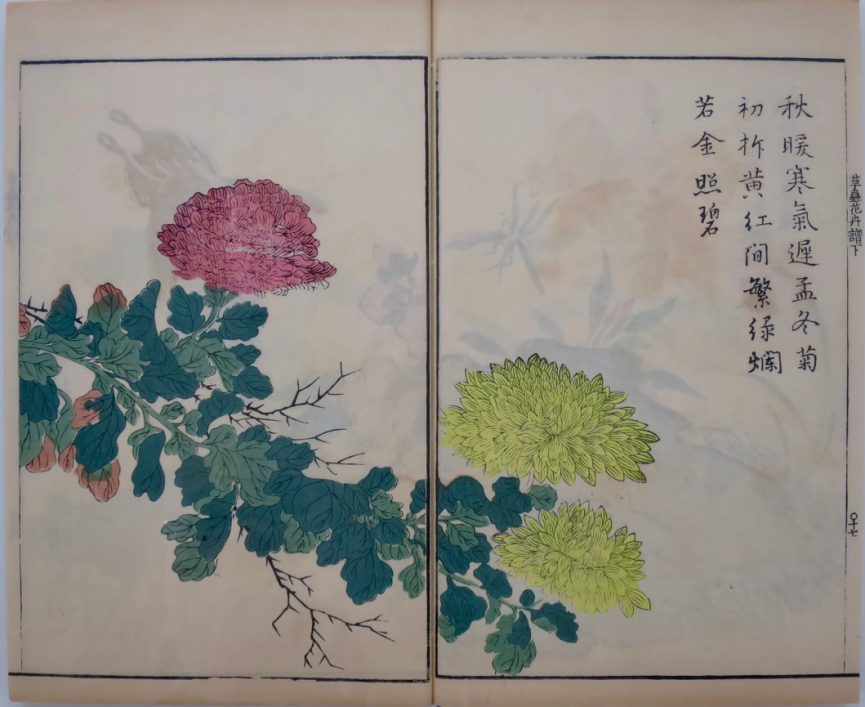 秋暖寒氣遲孟冬菊
初拆黄紅間繁緑爛
若金照碧
草蟲花卉譜下
〇十七